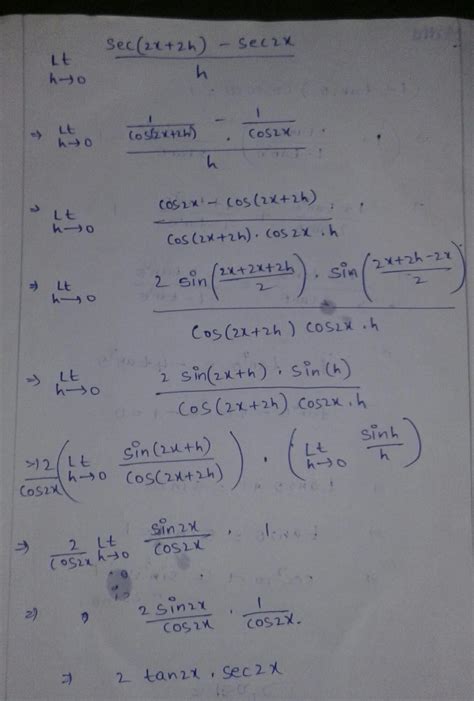 Lt h→0 (sec(2x+2h) - sec2x) / h
⇒ Lt h→0 (1/cos(2x+2h) - 1/cos2x) / h
⇒ Lt h→0 (cos2x - cos(2x+2h)) / (cos(2x+2h) . cos2x . h)
⇒ Lt h→0 (2 sin((2x+2x+2h)/2) . sin((2x+2h-2x)/2)) / (cos(2x+2h) cos2x . h)
⇒ Lt h→0 (2 sin(2x+h) . sin(h)) / (cos(2x+2h) cos2x . h)
⇒ 2/cos2x (Lt h→0 sin(2x+h)/cos(2x+2h)) . (Lt h→0 sinh/h)
⇒ 2/cos2x Lt h→0 sin2x/cos2x . 1
⇒ 2 sin2x/cos2x . 1/cos2x.
⇒ 2 tan2x . sec2x